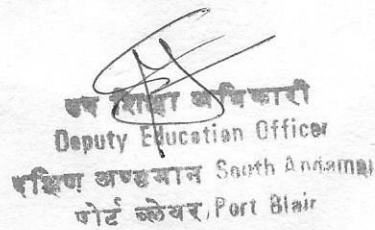 उप शिक्षा अधिकारी
Deputy Education Officer
दक्षिण अण्डमान South Andaman
पोर्ट ब्लेयर, Port Blair